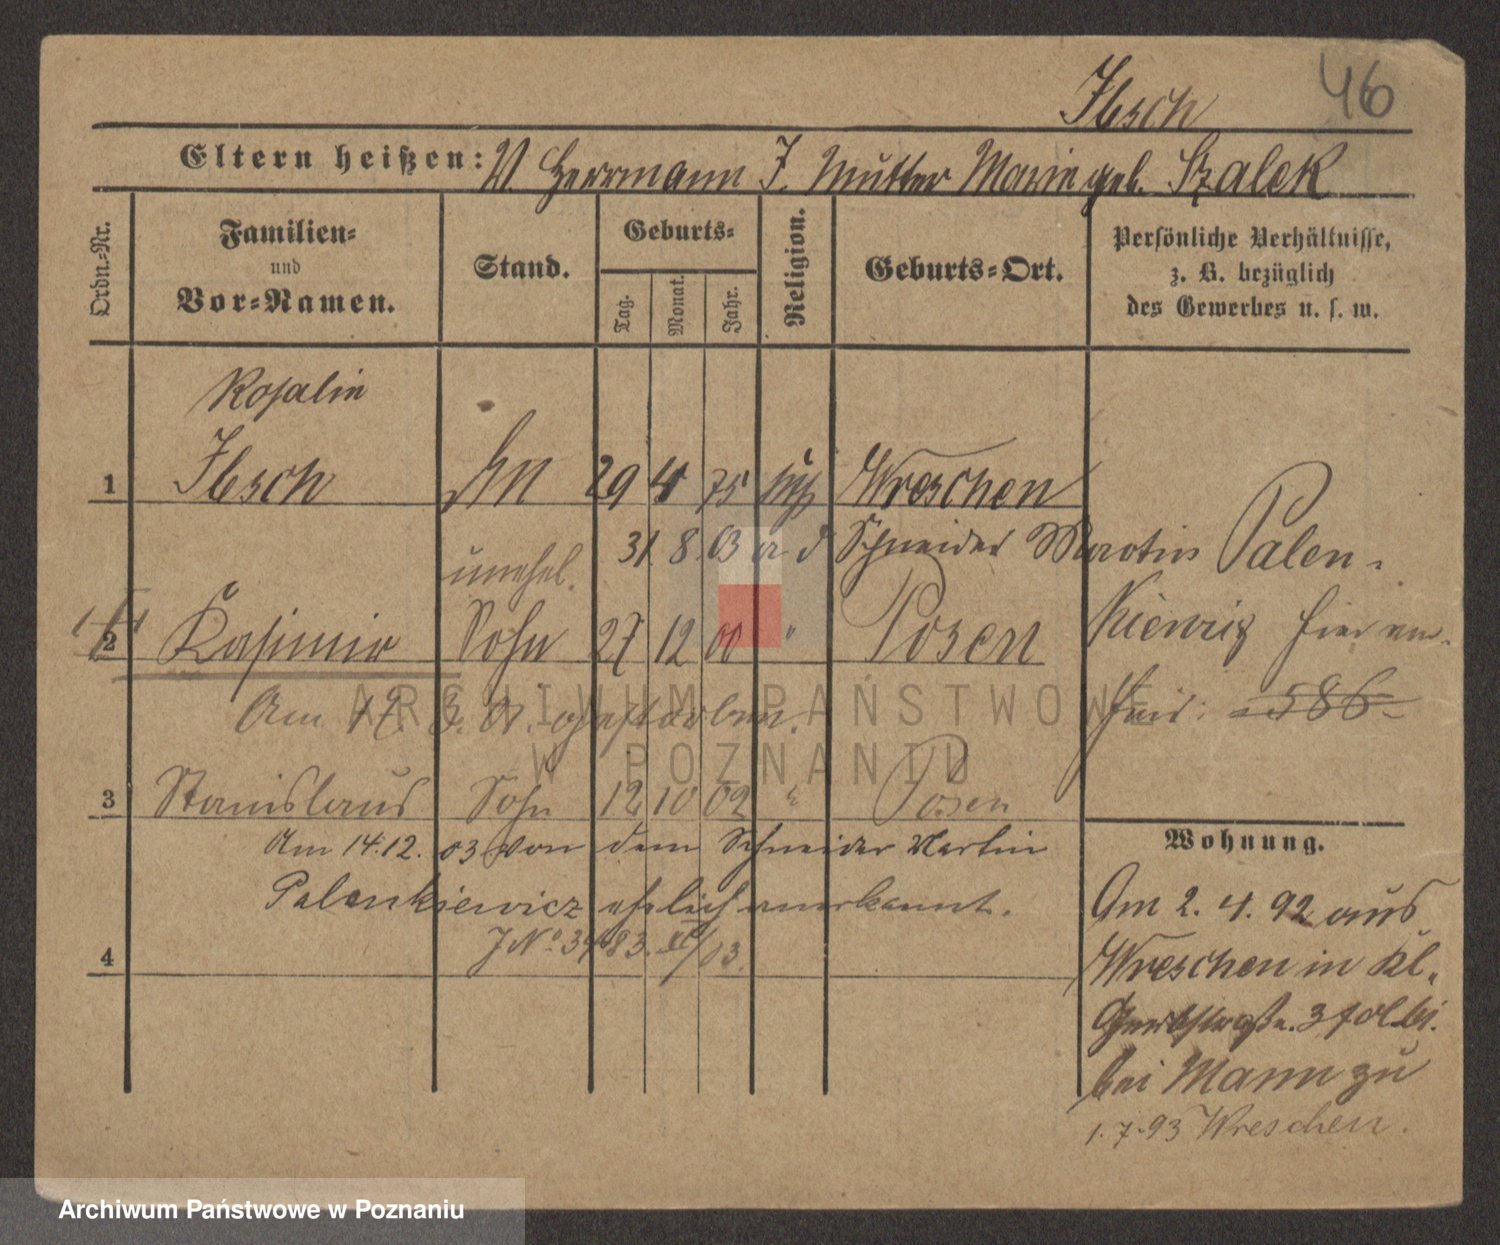 Ibsch 46
Eltern heißen: V. Herrmann I. Mutter Marie geb. Szalek
Ordn.-Nr.
Familien-
und
Vor-Namen.
Stand.
Geburts-
Tag.
Monat.
Jahr.
Religion.
Geburts-Ort.
Persönliche Verhältnisse,
z. B. bezüglich
des Gewerbes u. s. w.
Rosalie
1 Ibsch 29 4 75 Wreschen
unehel. 31. 8. 03 Schneider Martin Palen-
2 Kasimir Sohn 27 12 00 " Posen
kiewicz
Am 17. 3. 01. gestorben.
586
3 Stanislaus Sohn 12 10 02 " Posen
Am 14.12. 03 von dem Schneider Martin
Palenkiewicz ehelich anerkannt.
4
Wohnung.
Am 2. 4. 92 aus
Wreschen in Kl.
bei Mann zu
1. 7. 93 Wreschen.
ARCHIWUM PAŃSTWOWE
W POZNANIU
Archiwum Państwowe w Poznaniu